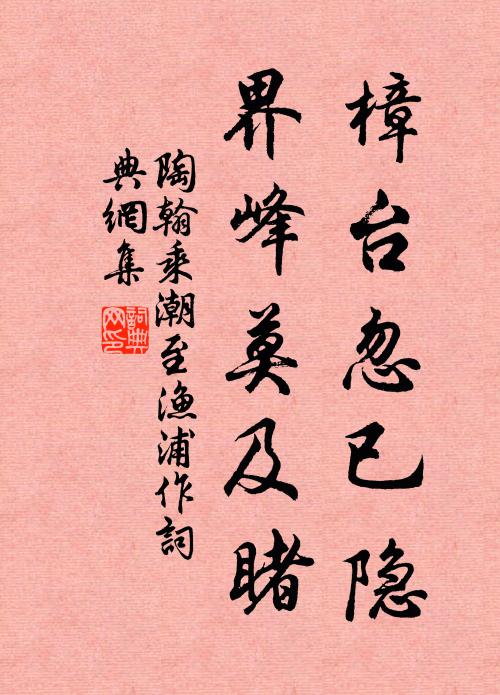 樟台忽已隐
界峰莫及睹
陶翰乘潮至渔浦作詞
典網集
詞典网印